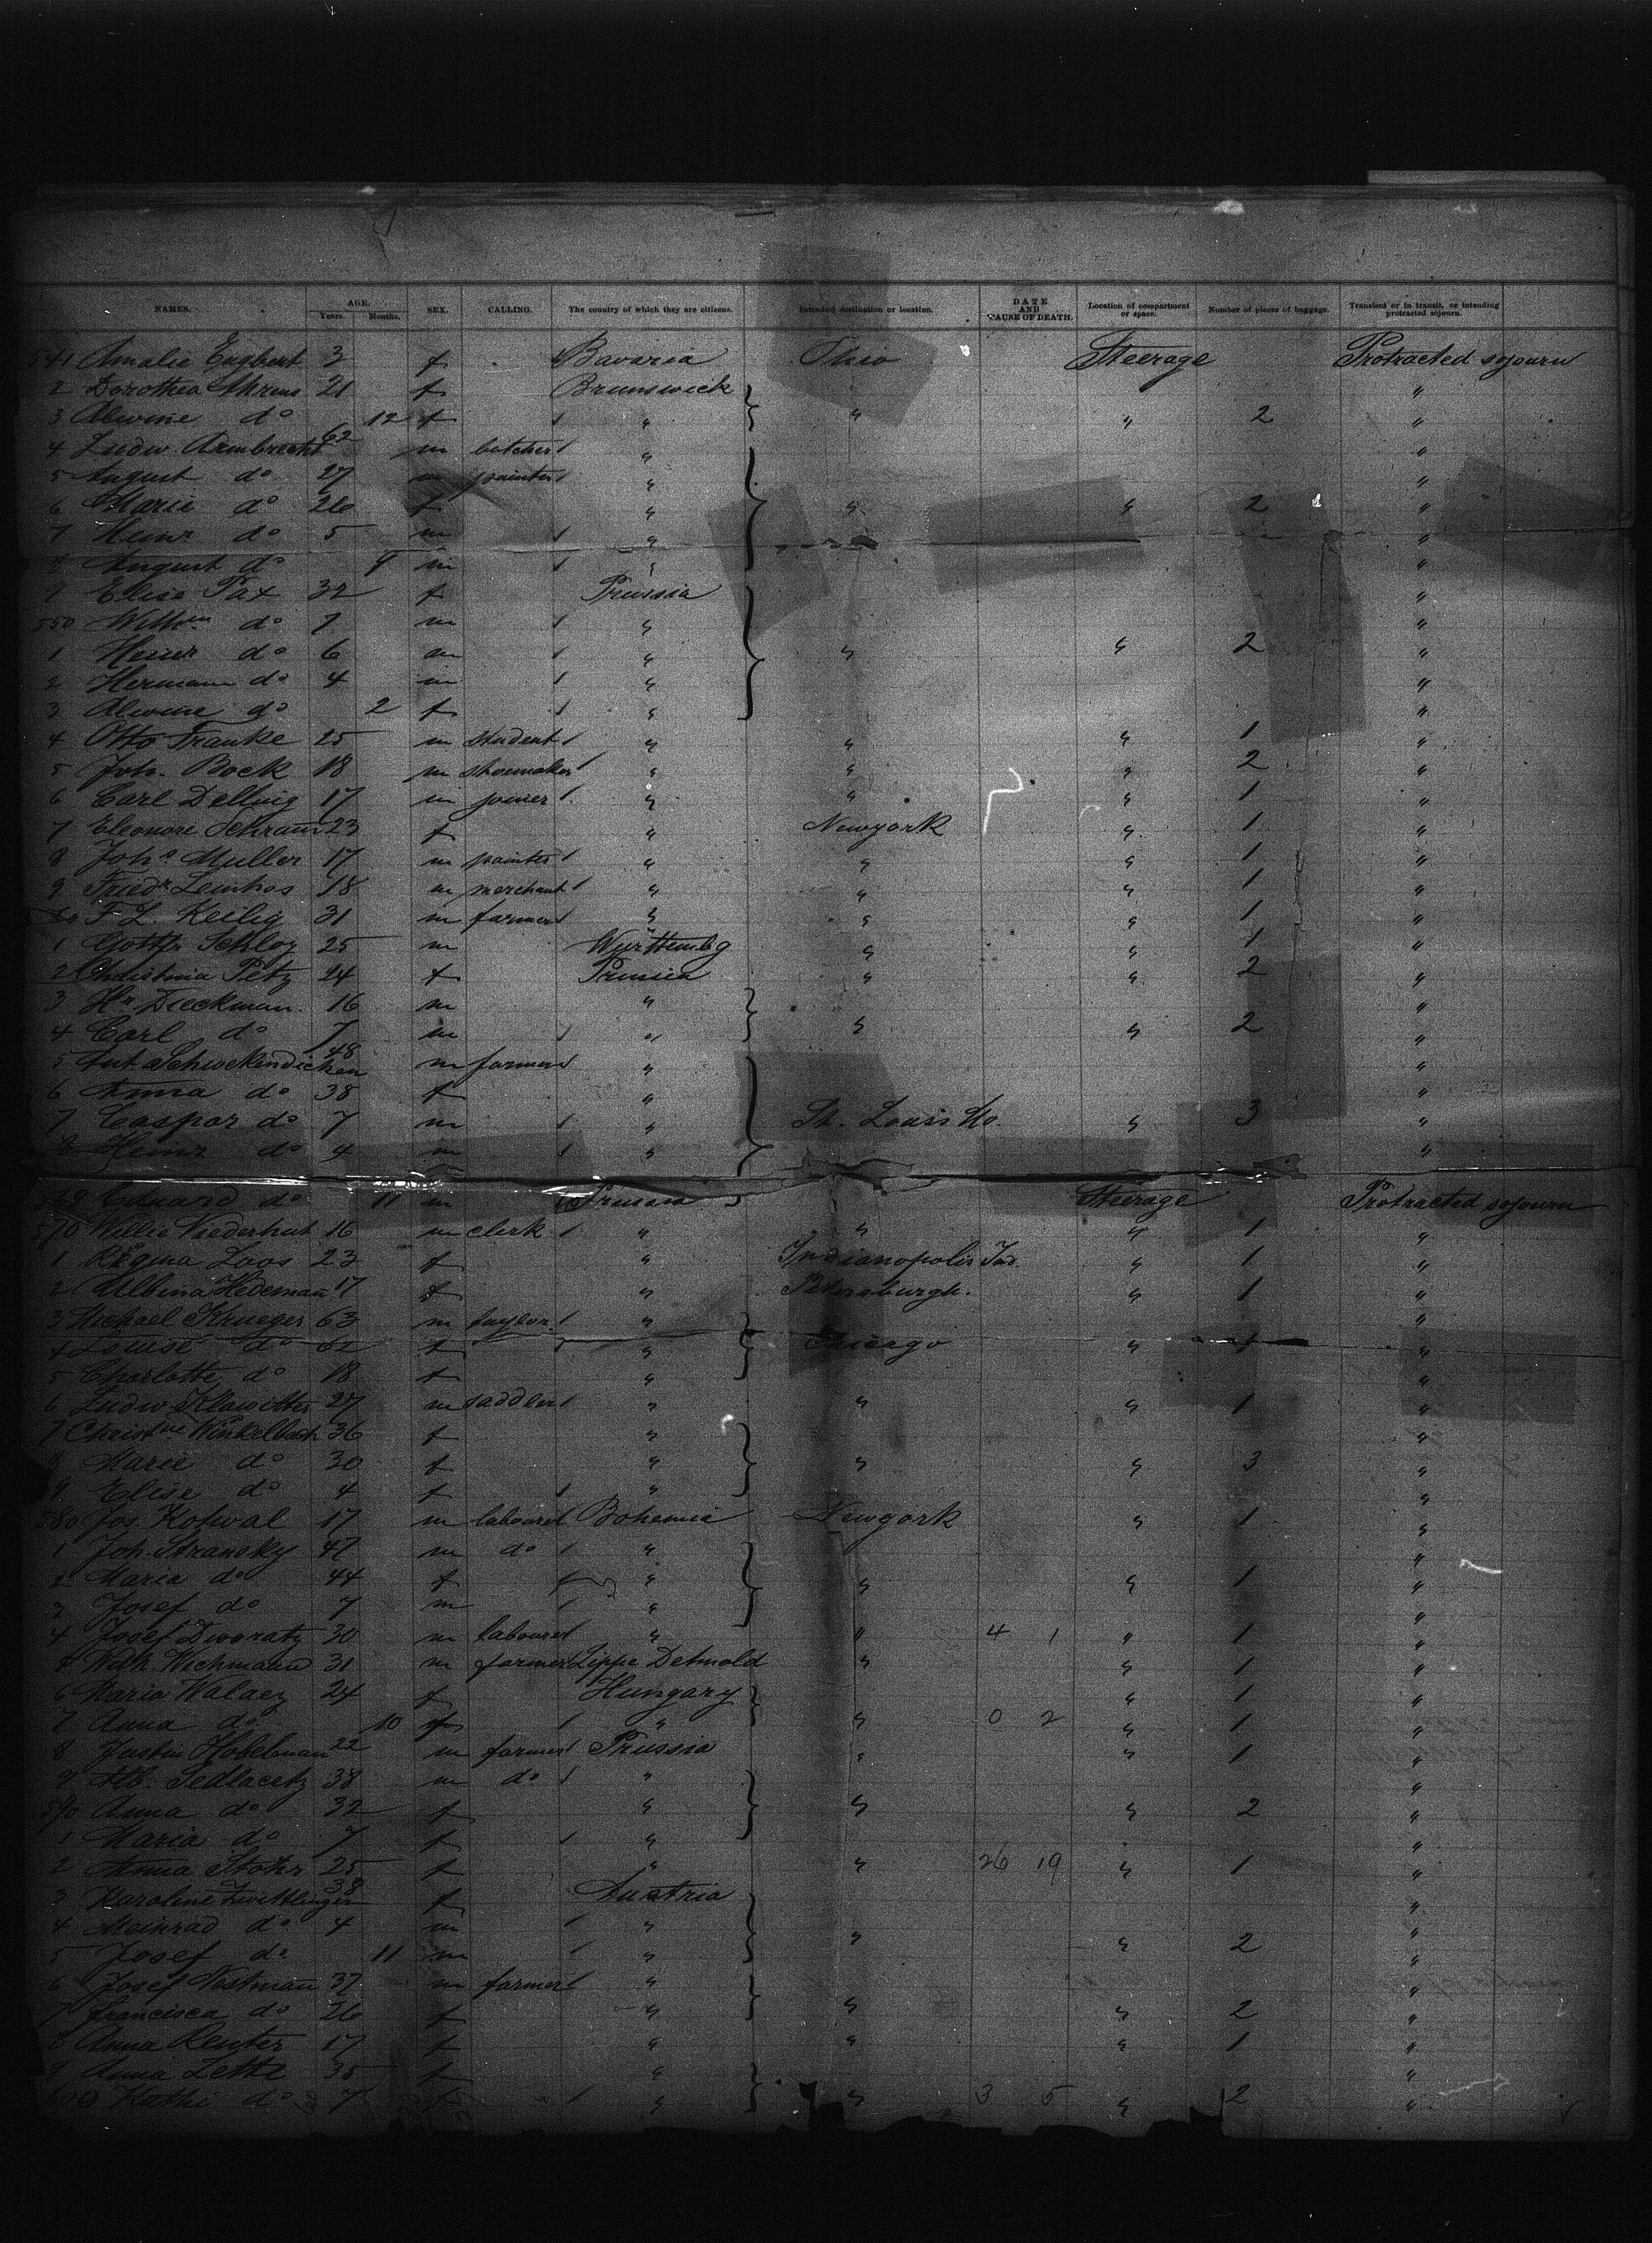 NAMES. AGE. Years. Months. SEX. CALLING. The country of which they are citizens. Intended destination or location. DATE AND CAUSE OF DEATH. Location of compartment or space. Number of pieces of baggage. Transient or in transit, or intending protracted sojourn.
541 Amalie Engbert 3 f Bavaria Ohio Steerage Protracted sojourn
2 Dorothea Ahrens 21 f Brunswick "
3 Alwine do 12 f " " " 2 "
4 Ludw. Armbrecht 62 m butcher " "
5 August do 27 m painter " "
6 Marie do 26 f " " " 2 "
7 Heinr do 5 m " "
8 August do 9 m " "
9 Elise Pax 32 f Prussia "
550 Wilhm do 7 m " "
1 Heinr do 6 m " " " 2 "
2 Hermann do 4 m " "
3 Alwine do 2 f " "
4 Otto Franke 25 m student " " " 1 "
5 Joh. Bock 18 m shoemaker " " " 2 "
6 Carl Dellwig 17 m joiner " " " 1 "
7 Eleonore Schram 23 f " Newyork " 1 "
8 Joh. Muller 17 m painter " " " 1 "
9 Friedr Leinhos 18 m merchant " " " 1 "
60 F. L. Keilig 31 m farmer " " " 1 "
1 Gottfr Schloz 25 m Württembg " " 1 "
2 Christina Petz 24 f Prussia " " 2 "
3 Hr. Dieckman. 16 m " "
4 Carl do 7 m " " " 2 "
5 Ant Schwekendieken 48 m farmer " "
6 Anna do 38 f " "
7 Caspar do 7 m " St. Louis Mo. " 3 "
8 Heinr do 4 m " "
569 Eduard do 11 m Prussia Steerage Protracted sojourn
570 Willie Niederhut 16 m clerk " " " 1 "
1 Regina Loos 23 f " Indianopolis Ind. " 1 "
2 Albina Hedeman 17 f " Petersburgh. " 1 "
3 Michael Krueger 63 m taylor " "
4 Louise do 62 f " Chicago " 1 "
5 Charlotte do 18 f " "
6 Ludw Klawitter 27 m saddler " " " 1 "
7 Christne Winkelbach 36 f " "
8 Marie do 30 f " " " 3 "
9 Elise do 4 f " "
580 Jos. Kopval 17 m labourer Bohemia Newyork " 1 "
1 Joh. Stransky 47 m do " "
2 Maria do 44 f " " " 1 "
3 Josef do 7 m " "
4 Josef Dworatz 30 m labourer " " 4 1 " 1 "
5 Wilh. Wichmann 31 m farmer Lippe Detmold " " 1 "
6 Maria Walaez 24 f Hungary " 1 "
7 Anna do 10 f " " 0 2 " 1 "
8 Justin Hobelman 22 m farmer Prussia " " 1 "
9 Alb. Sedlacetz 38 m do " "
590 Anna do 32 f " " " 2 "
1 Maria do 7 f " "
2 Anna Stohr 25 f " " 26 19 " 1 "
3 Karoline 38 f Austria "
4 Meinrad do 4 m " " "
5 Josef do 11 m " " 2 "
6 Josef Nostman 37 m farmer " "
7 Francisca do 26 f " " " 2 "
8 Anna Reuter 17 f " " " 1 "
9 Anna Lettl 35 f " "
600 Kathi do 7 f " " 3 5 " 2 "